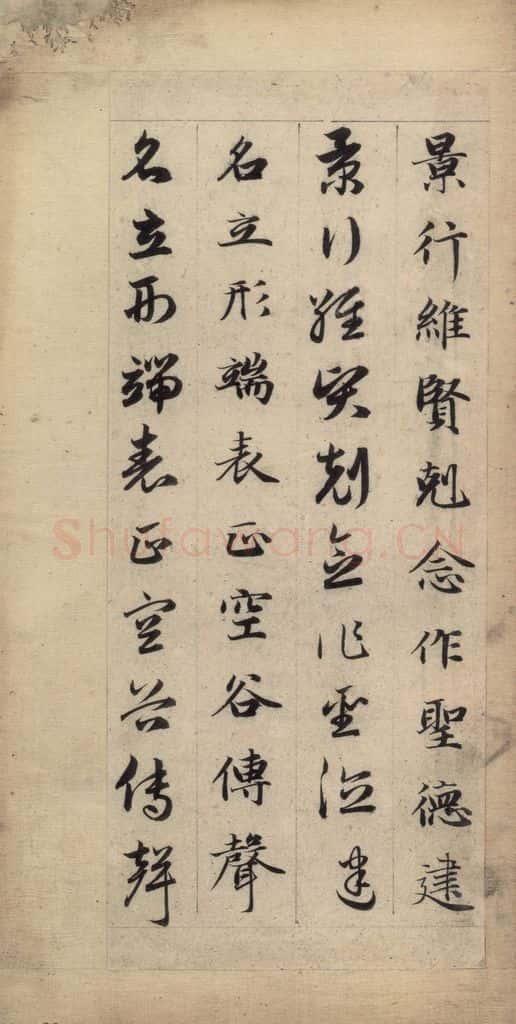 景行維賢剋念作聖德建
景行維賢剋念作聖德建
名立形端表正空谷傳聲
名立形端表正空谷傳聲
Shufawang.CN